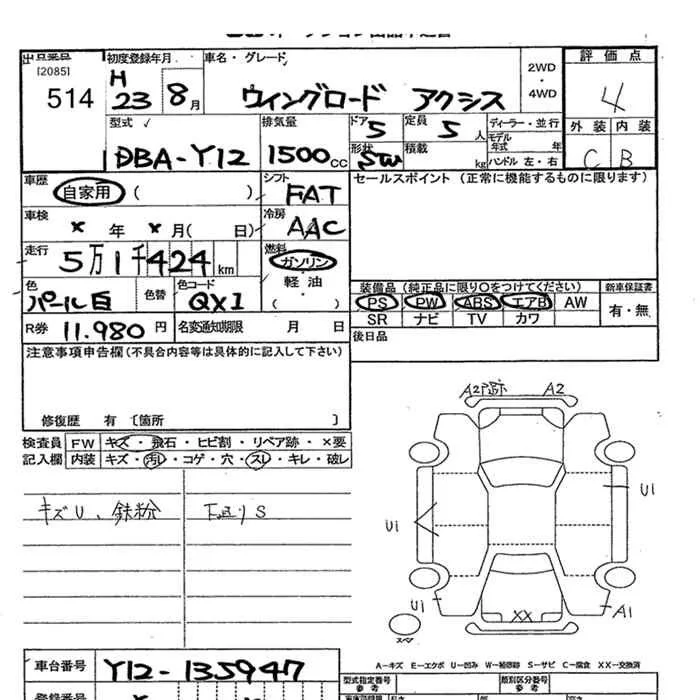 出品番号 初度登録年月 車名・グレード 2WD・4WD 評価点
[2085]
514 H23 8月 ウィングロード アクシス 4
型式 排気量 ドア 定員 ディーラー・並行 外装 内装
DBA-Y12 1500cc 5 5人 モデル年式 年 C B
形状 SW 積載 kg ハンドル 左・右
車歴 自家用 ( ) シフト FAT セールスポイント (正常に機能するものに限ります)
車検 ×年 ×月( 日) 冷房 AAC
走行 5万1千424km 燃料 ガソリン・軽油・( )
装備品 (純正品に限り○をつけてください) 新車保証書
色 パール白 色替 色コード QX1 PS PW ABS エアB AW 有・無
SR ナビ TV カワ
R券 11.980円 名変通知期限 月 日 後日品
注意事項申告欄(不具合内容等は具体的に記入して下さい)
修復歴 有 〔箇所 〕
A2P跡 A2
検査員 FW キズ・飛石・ヒビ割・リペア跡・×要
記入欄 内装 キズ・汚レ・コゲ・穴・スレ・キレ・破レ
U1
キズU、鉄粉 下廻りS
U1
U1 XX A1
A-キズ E-エクボ U-凹み W-補修跡 S-サビ C-腐食 XX-交換済
車台番号 Y12-135947 型式指定番号 参考 類別区分番号 参考
登録番号